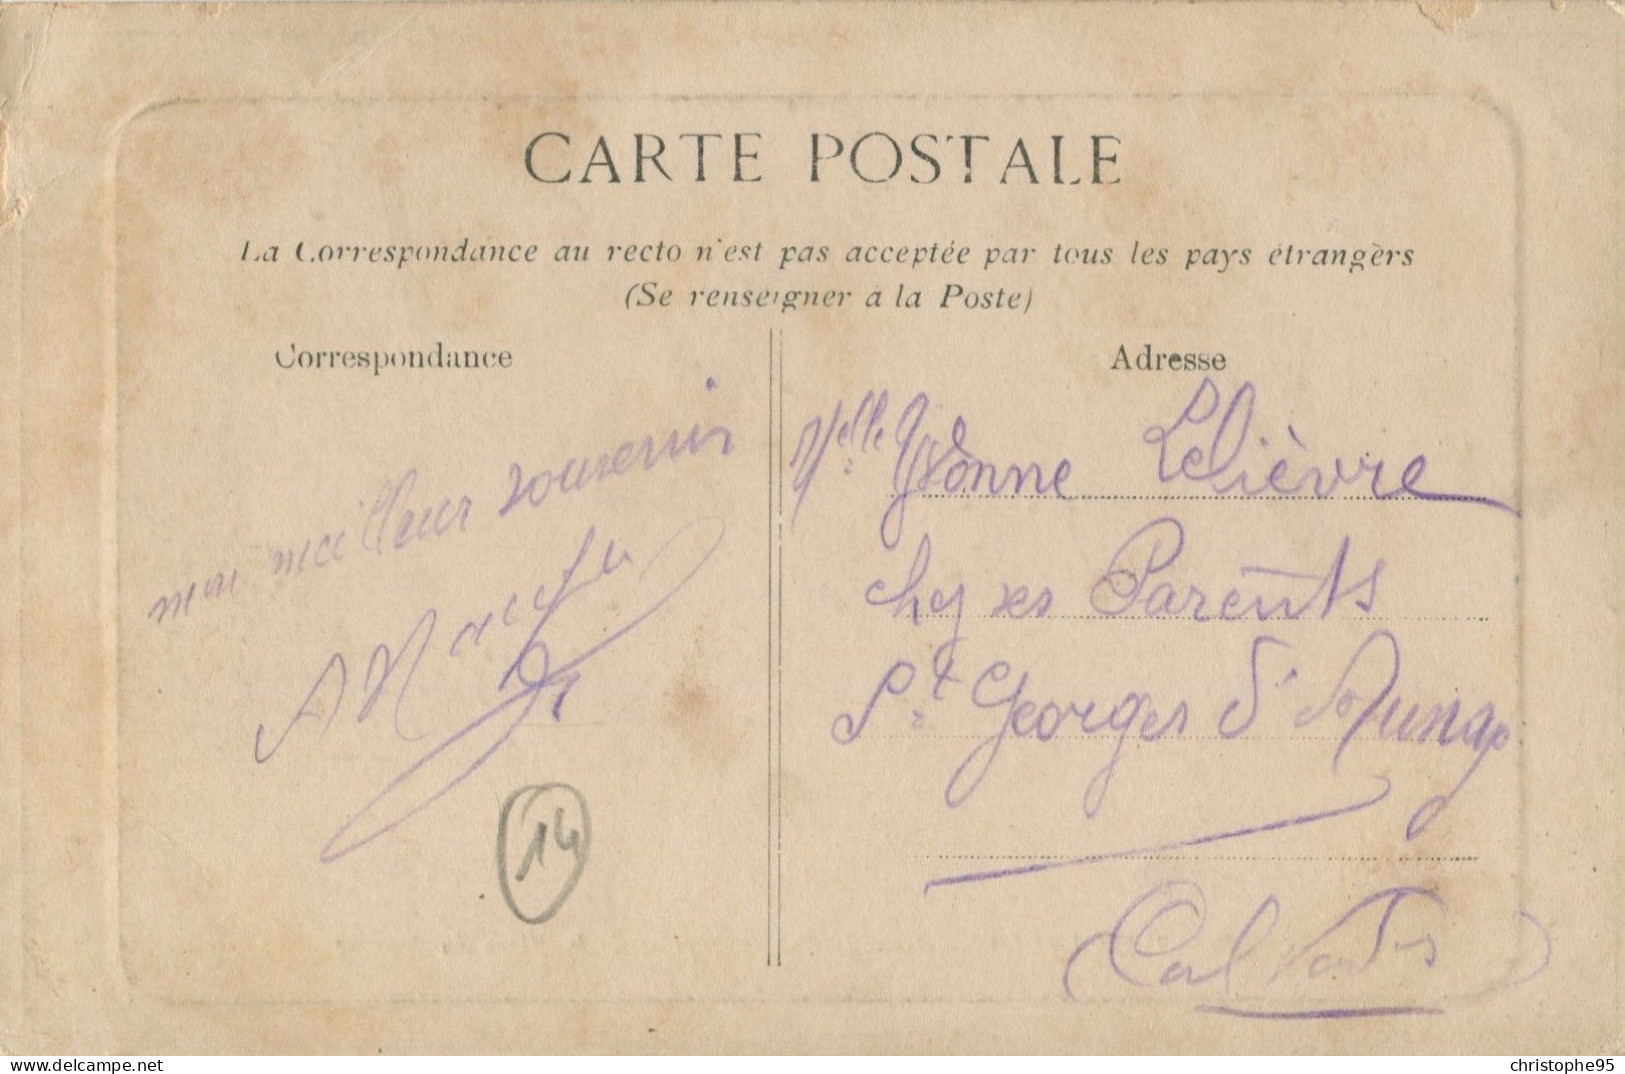 CARTE POSTALE
La Correspondance au recto n'est pas acceptée par tous les pays étrangèrs
(Se renseigner a la Poste)
Correspondance
mon meilleur souvenir
14
Adresse
Melle Yvonne Lelièvre
chez ses Parents
St Georges d'Aunay
Calvados
delcampe.net
christophe95